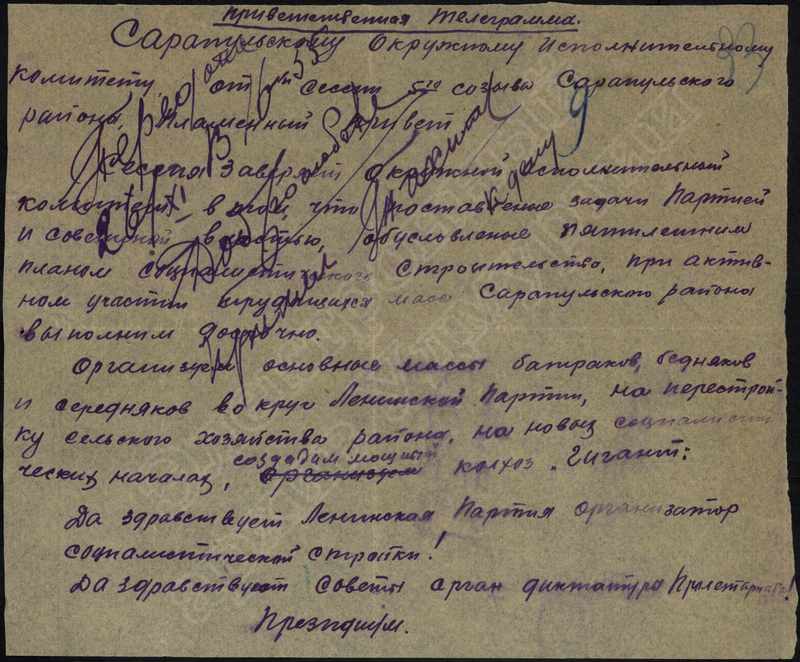 Приветственная телеграмма.
Сарапульскому Окружному Исполнительному
комитету от сессии 5го созыва Сарапульского
района, Пламенный Привет
Сессия Заверяет окружной исполнительный
комитет в том, что поставленые задачи Партией
и советской властью, обусловленые пятилетним
планом социалистического строительства, при актив-
ном участии трудящихся масс Сарапульского района
выполним досрочно.
Организуем основные массы батраков, бедняков
и середняков вокруг Ленинской Партии, на перестрой-
ку сельского хозяйства района, на новых социалисти
ческих началах, создадим мощный организуем колхоз „Гигант:
Да здравствует Ленинская Партия организатор
социалистической стройки!
Да здравствует советы орган диктатура Пролетариата!
Президиум.